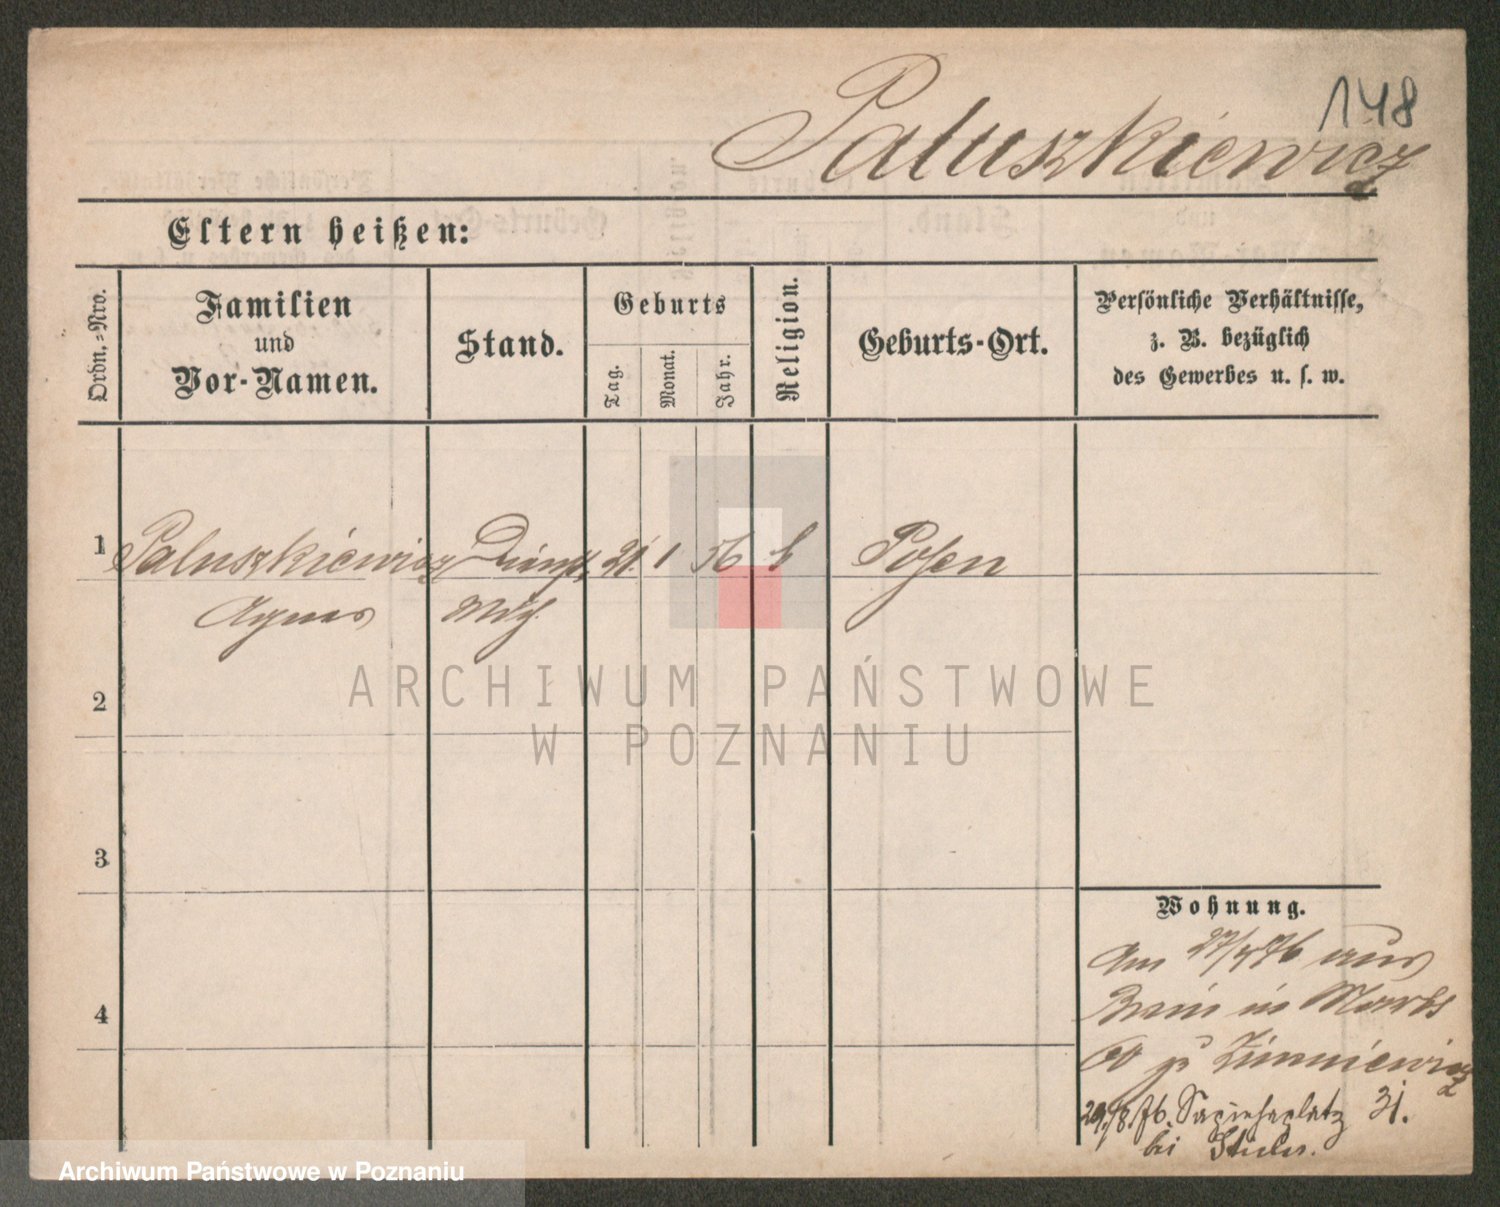 148
Paluszkiewicz
Eltern heißen:
Ordn.-Nro.
Familien
und
Vor-Namen.
Stand.
Geburts
Tag.
Monat.
Jahr.
Religion.
Geburts-Ort.
Persönliche Verhältnisse,
z. B. bezüglich
des Gewerbes u. s. w.
1 Paluszkiewicz Dienst 21. 1 56 Posen
Agnes
2
3
4
Wohnung.
Am 27/ 76 aus
in
60 zu
29/8. 76. Sapiehaplatz 31.
bei
ARCHIWUM PAŃSTWOWE
W POZNANIU
Archiwum Państwowe w Poznaniu